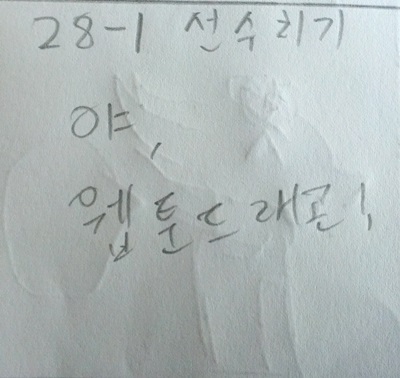 28-1 선수치기
야,
웹툰드래곤!